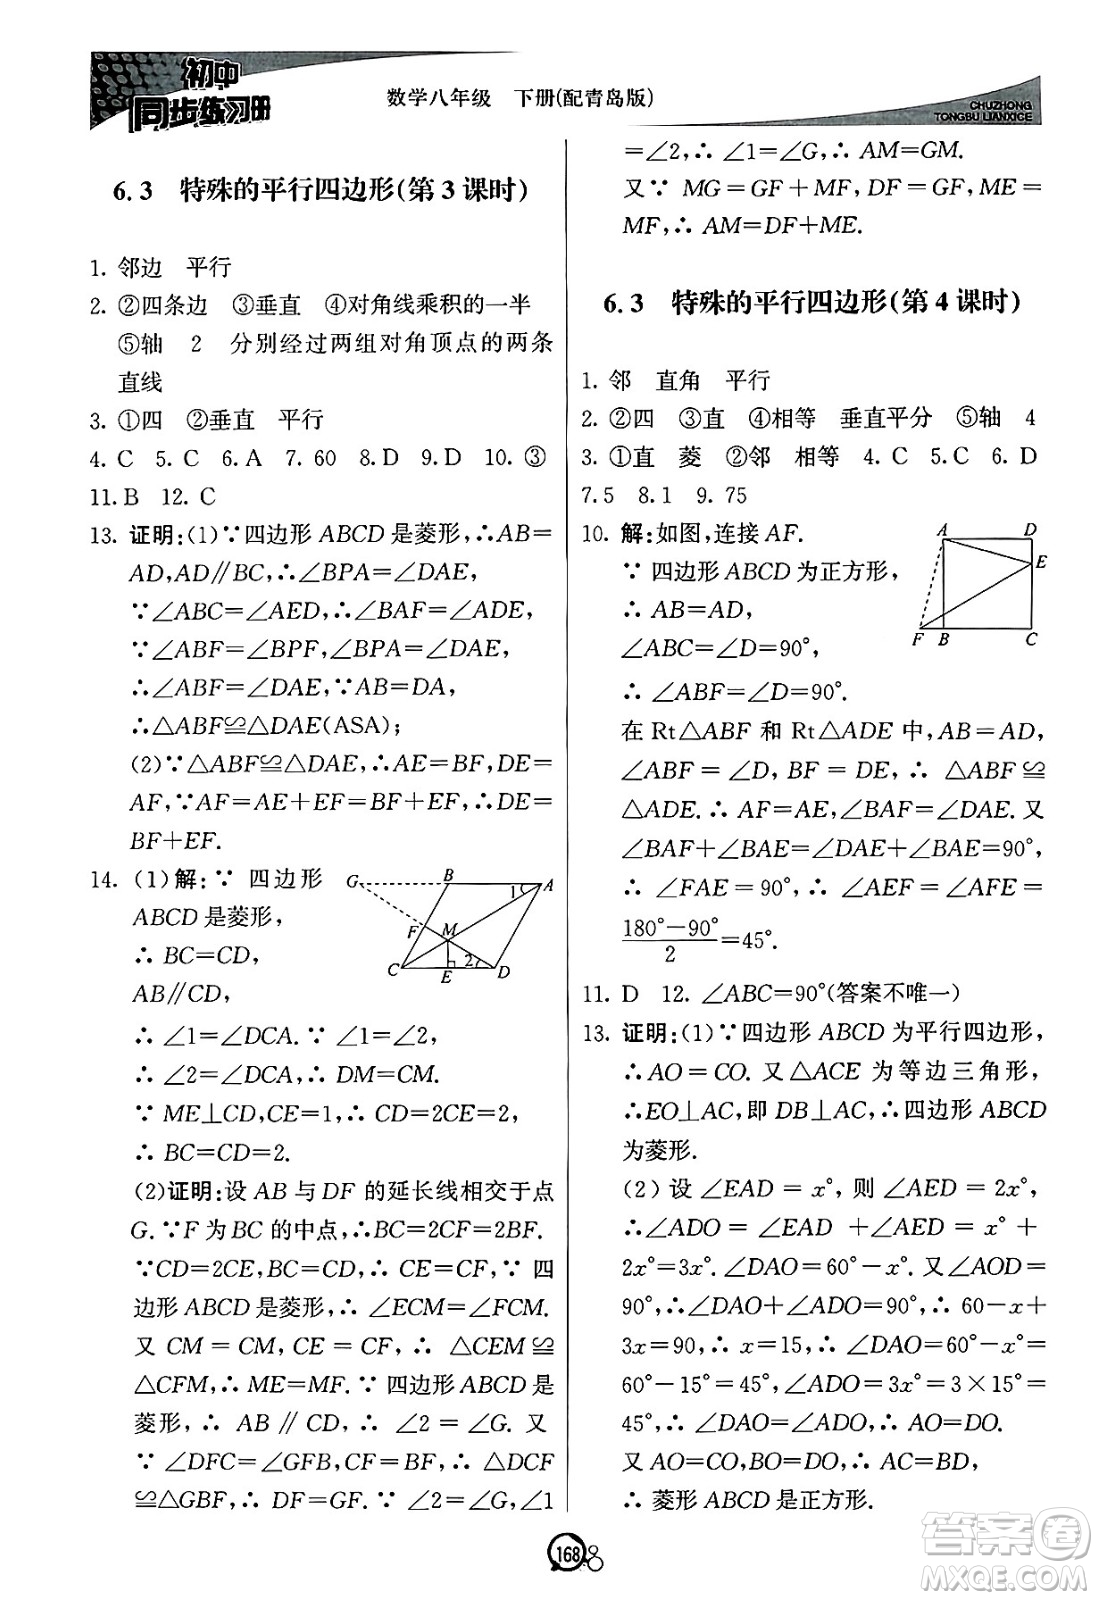 初中
同步练习册
数学八年级 下册(配青岛版)
CHUZHONG
TONGBU LIANXICE
6.3 特殊的平行四边形(第3课时)
1. 邻边 平行
2. ②四条边 ③垂直 ④对角线乘积的一半
⑤轴 2 分别经过两组对角顶点的两条
直线
3. ①四 ②垂直 平行
4. C 5. C 6. A 7. 60 8. D 9. D 10. ③
11. B 12. C
13. 证明:(1)∵四边形 ABCD 是菱形,∴AB=
AD,AD∥BC,∴∠BPA=∠DAE,
∵∠ABC=∠AED,∴∠BAF=∠ADE,
∵∠ABF=∠BPF,∠BPA=∠DAE,
∴∠ABF=∠DAE,∵AB=DA,
∴△ABF≌△DAE(ASA);
(2)∵△ABF≌△DAE,∴AE=BF,DE=
AF,∵AF=AE+EF=BF+EF,∴DE=
BF+EF.
14. (1)解:∵ 四边形
ABCD 是菱形,
∴ BC=CD,
AB∥CD,
G B A 1 F M C E 2 D
∴ ∠1=∠DCA. ∵ ∠1=∠2,
∴ ∠2=∠DCA,∴ DM=CM.
∵ ME⊥CD,CE=1,∴ CD=2CE=2,
∴ BC=CD=2.
(2)证明:设 AB 与 DF 的延长线相交于点
G. ∵F 为 BC 的中点,∴BC=2CF=2BF.
∵CD=2CE,BC=CD,∴ CE=CF,∵ 四
边形 ABCD 是菱形,∴ ∠ECM=∠FCM.
又 CM = CM, CE = CF, ∴ △CEM ≌
△CFM,∴ ME=MF. ∵ 四边形 ABCD 是
菱形,∴ AB ∥ CD, ∴ ∠2 = ∠G. 又
∵ ∠DFC = ∠GFB, CF = BF, △DCF
≌△GBF,∴ DF=GF. ∵ ∠2=∠G,∠1
=∠2,∴ ∠1=∠G,∴ AM=GM.
又∵ MG = GF + MF, DF = GF, ME =
MF,∴ AM=DF+ME.
6.3 特殊的平行四边形(第4课时)
1. 邻 直角 平行
2. ②四 ③直 ④相等 垂直平分 ⑤轴 4
3. ①直 菱 ②邻 相等 4. C 5. C 6. D
7. 5 8. 1 9. 75
10. 解:如图,连接 AF.
∵ 四边形 ABCD 为正方形,
∴ AB=AD,
∠ABC=∠D=90°,
A D E F B C
∴ ∠ABF=∠D=90°.
在 Rt△ABF 和 Rt△ADE 中,AB=AD,
∠ABF = ∠D, BF = DE, ∴ △ABF ≌
△ADE. ∴ AF=AE,∠BAF=∠DAE. 又
∠BAF+∠BAE=∠DAE+∠BAE=90°,
∴ ∠FAE = 90°, ∴ ∠AEF = ∠AFE =
180°-90°/2=45°.
11. D 12. ∠ABC=90°(答案不唯一)
13. 证明:(1)∵四边形 ABCD 为平行四边形,
∴AO = CO. 又 △ACE 为等边三角形,
∴EO⊥AC,即 DB⊥AC,∴四边形 ABCD
为菱形.
(2) 设 ∠EAD = x°, 则 ∠AED = 2x°,
∴∠ADO = ∠EAD +∠AED = x° +
2x°=3x°. ∠DAO=60°-x°. 又∠AOD=
90°,∴∠DAO+∠ADO=90°,∴ 60-x+
3x=90,∴ x=15,∴∠DAO=60°-x°=
60°-15°=45°,∠ADO=3x°=3×15°=
45°,∴ ∠DAO=∠ADO,∴ AO=DO.
又 AO=CO,BO=DO,∴ AC=BD,
∴ 菱形 ABCD 是正方形.
168
答案圈
MXQE.COM